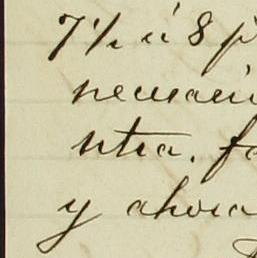 7 1/2 á 8 p
necesari
ntra. fa
y ahora